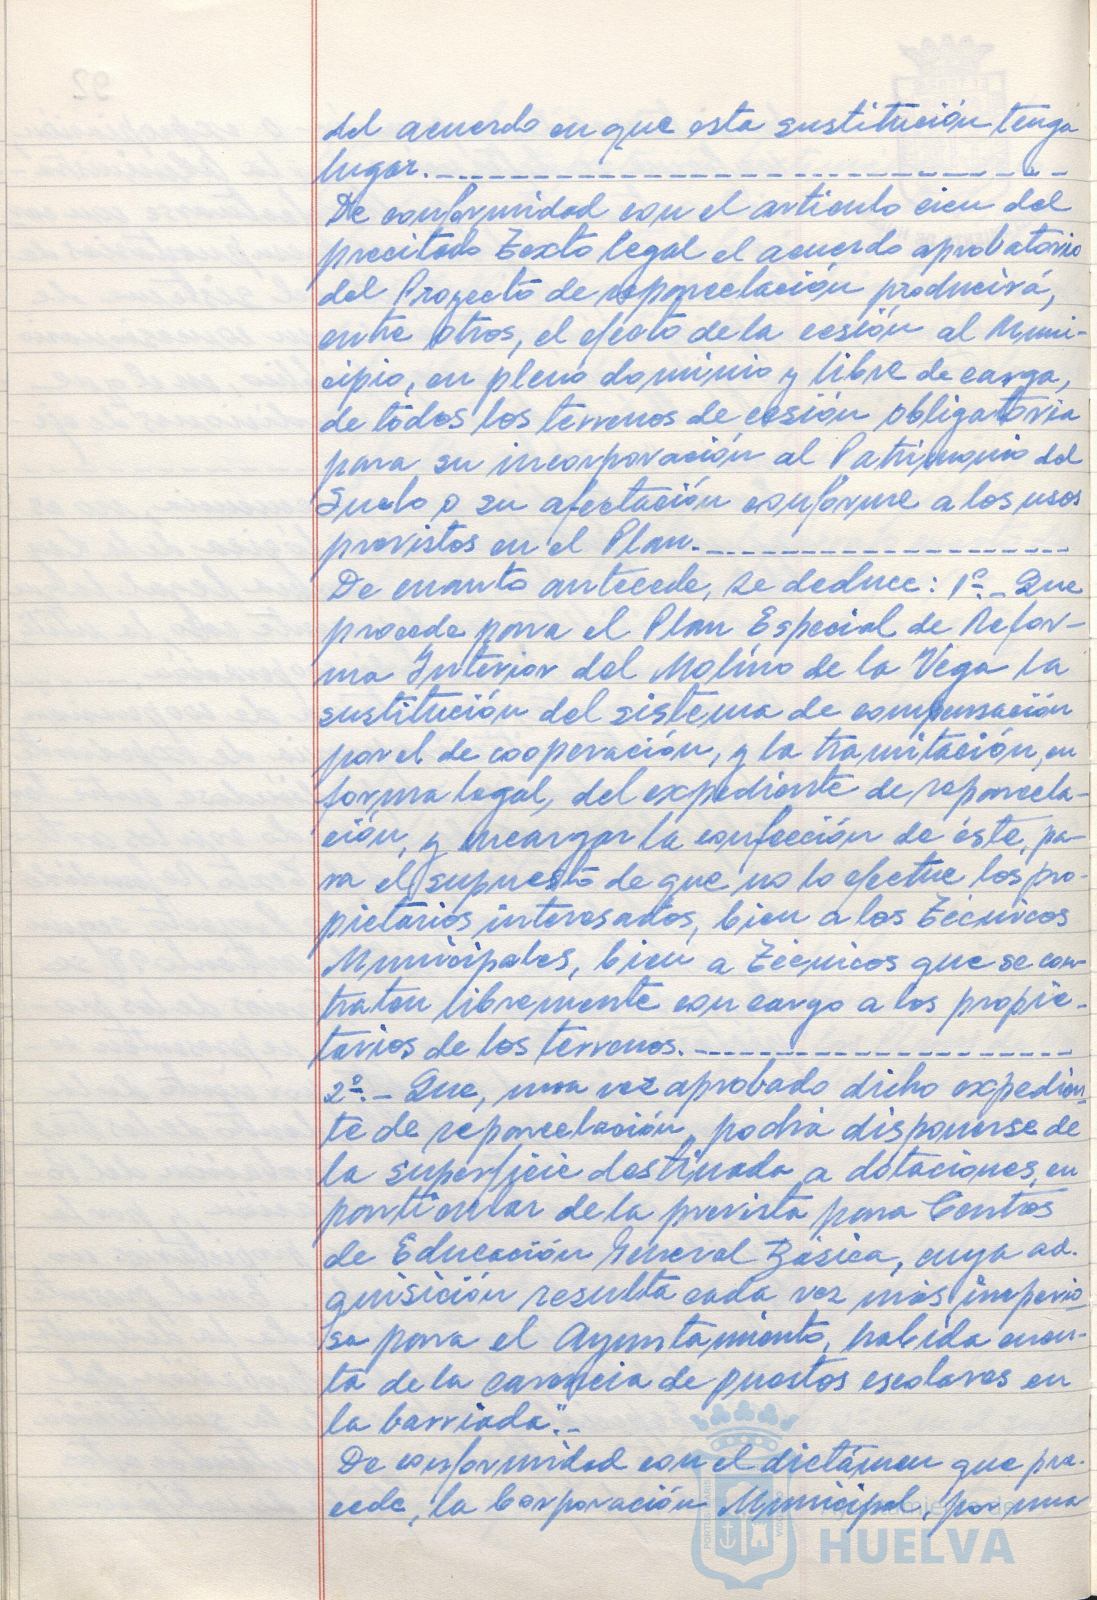 del acuerdo en que esta sustitución tenga
lugar.
De conformidad con el articulo cien del
precitado Texto legal el acuerdo aprobatorio
del Proyecto de reparcelación producirá,
entre otros, el efecto de la cesión al Muni-
cipio, en pleno dominio y libre de carga,
de todos los terrenos de cesión obligatoria
para su incorporación al Patrimonio del
Suelo o su afectación conforme a los usos
previstos en el Plan.
De cuanto antecede, se deduce: 1º.- Que
procede para el Plan Especial de Refor-
ma Interior del Molino de la Vega la
sustitución del sistema de compensación
por el de cooperación, y la tramitación, en
forma legal, del expediente de reparcela-
ción, y encargar la confección de éste, pa-
ra el supuesto de que no lo efectue los pro-
pietarios interesados, bien a los Técnicos
Municipales, bien a Técnicos que se con-
traten libremente con cargo a los propie-
tarios de los terrenos.
2º.- Que, una vez aprobado dicho expedien-
te de reparcelación, podrá disponerse de
la superficie destinada a dotaciones, en
particular de la prevista para Centros
de Educación General Básica, cuya ad-
quisición resulta cada vez más imperio-
sa para el Ayuntamiento, habida cuen-
ta de la carencia de puestos escolares en
la barriada".-
De conformidad con el dictámen que pre-
cede, la Corporación Municipal, por una
Ayuntamiento de
HUELVA